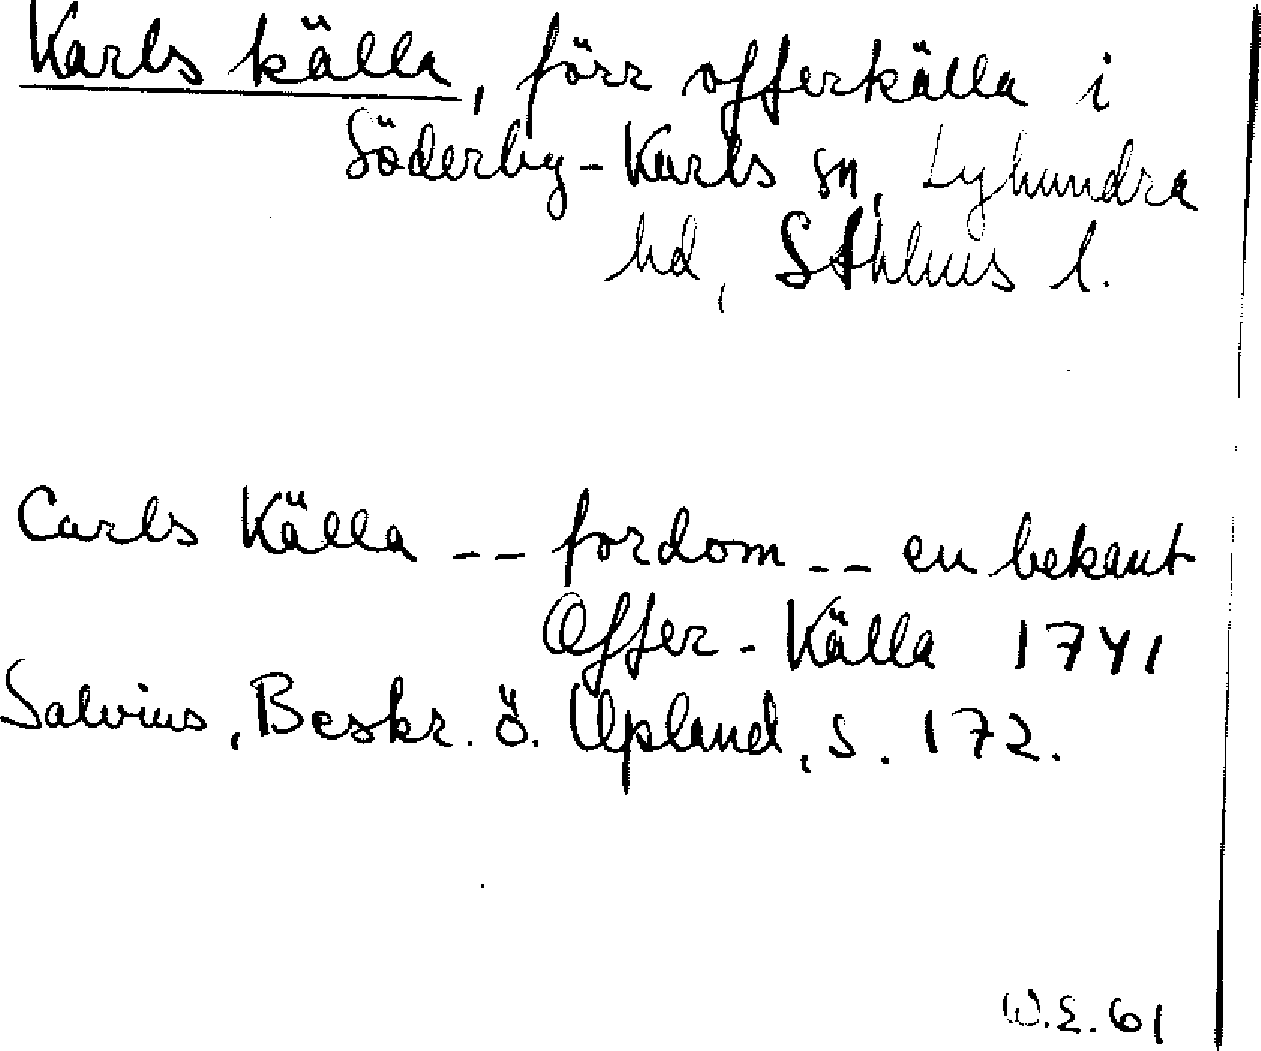 Karls källa, förr offerkälla i
Söderby-Karls sn, Lyhundra
hd, Sthlms l.
Carls Källa -- fordom -- en bekant
Offer-Källa 1741
Salvius, Beskr. ö. Upland, s. 172.
W.E. 61